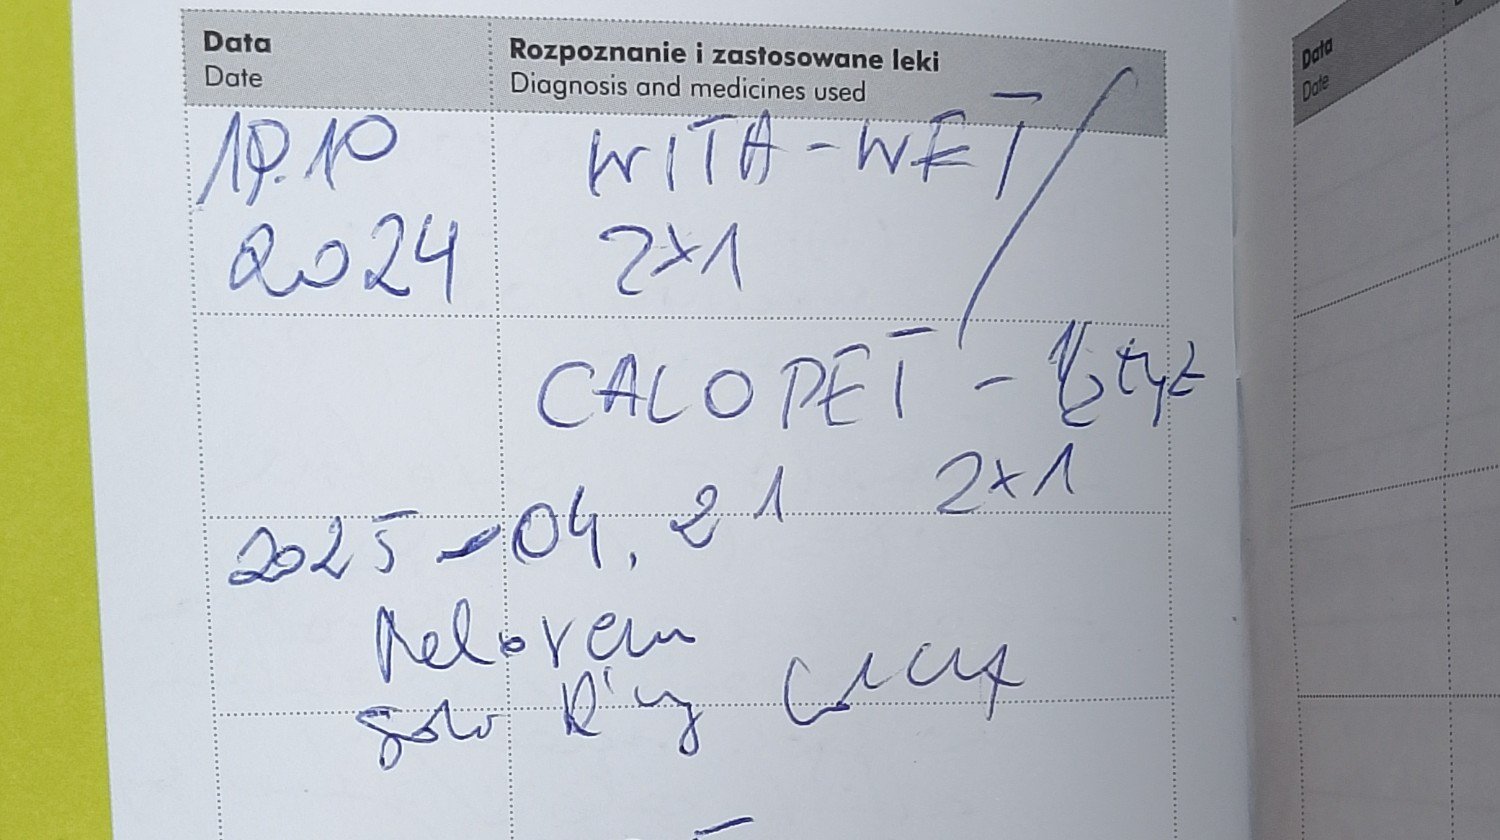 Data
Date
Rozpoznanie i zastosowane leki
Diagnosis and medicines used
19.10
2024
WITA-WET
2x1
CALOPET - 1/2 tyż
2x1
2025-04.21
Data
Date